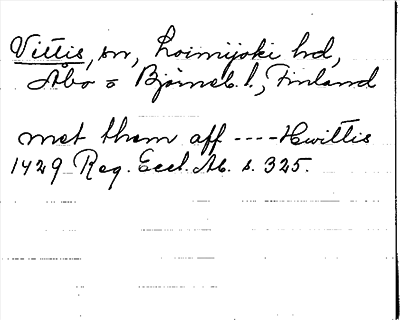 Vittis, sn, Loimijoki hd,
Åbo o Björneb. l., Finland
met them aff ---- Hwittis
1429 Reg. Eccl. Ab. s. 325.